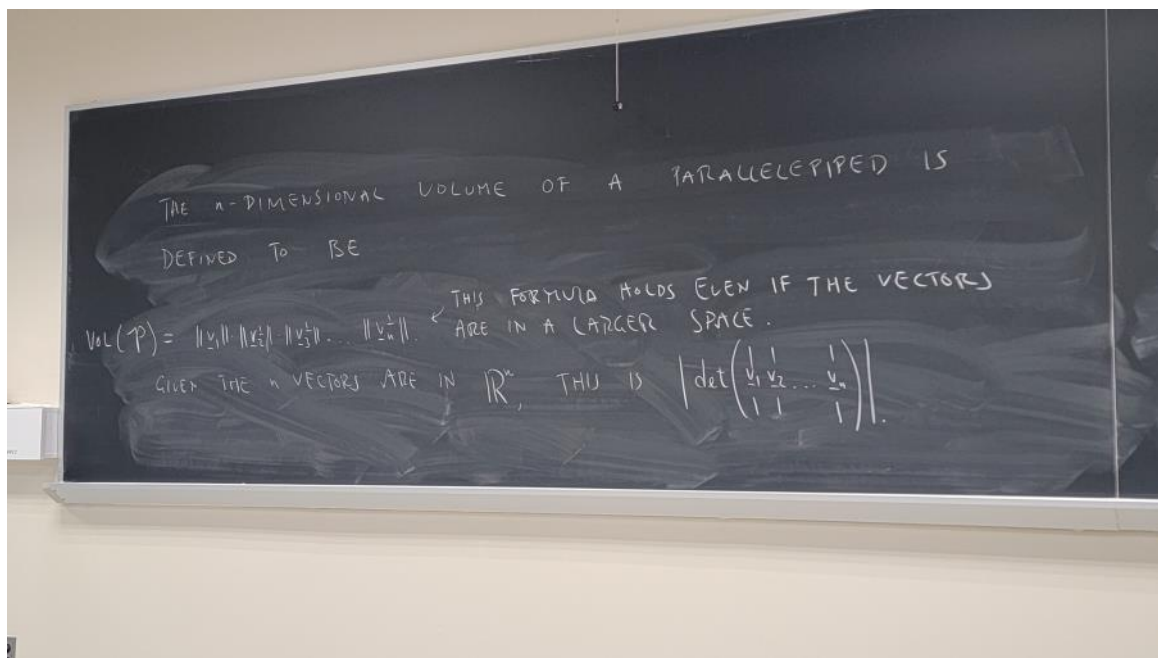 THE n-DIMENSIONAL VOLUME OF A PARALLELEPIPED IS
DEFINED TO BE
VOL(P) = ||v₁||·||v₂^⊥||·||v₃^⊥||. ... ||vₙ^⊥||. ↙ THIS FORMULA HOLDS EVEN IF THE VECTORS
ARE IN A LARGER SPACE.
GIVEN THE n VECTORS ARE IN ℝⁿ, THIS IS |det(v₁ v₂ ... vₙ)|.